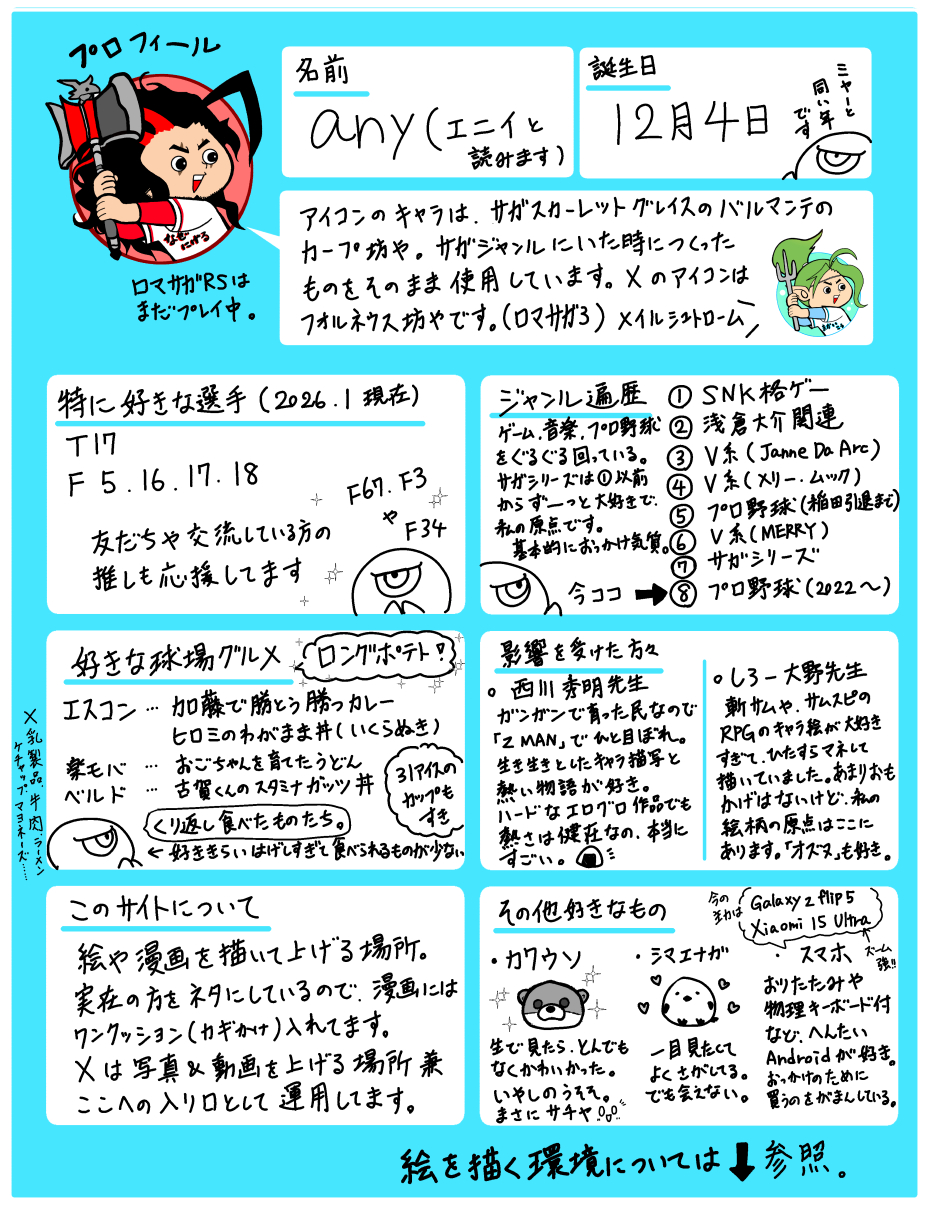 プロフィール
名前
any(エニイと
読みます)
誕生日
12月4日
ミヤーと
同い年
です
なぜ
にげる
ロマサガRSは
まだプレイ中。
アイコンのキャラは、サガスカーレットグレイスのバルマンテの
カープ坊や。サガジャンルにいた時につくった
ものをそのまま使用しています。Xのアイコンは
フォルネウス坊やです。(ロマサガ3) ×イルシュトローム
特に好きな選手(2026.1現在)
T17
F 5.16.17.18
F67.F3
や
F34
友だちや交流している方の
推しも応援してます
ジャンル遍歴
ゲーム、音楽、プロ野球
をぐるぐる回っている。
サガシリーズは①以前
からずーっと大好きで、
私の原点です。
基本的におっかけ気質。
① SNK格ゲー
② 浅倉大介関連
③ V系(Janne Da Arc)
④ V系(メリー・ムック)
⑤ プロ野球(稲田引退まで)
⑥ V系(MERRY)
⑦ サガシリーズ
今ココ→⑧ プロ野球(2022〜)
好きな球場グルメ
ロングポテト!
エスコン … 加藤で勝とう勝つカレー
ヒロミのわがまま丼(いくらぬき)
楽モバ … おごちゃんを育てたうどん
ベルド … 古賀くんのスタミナガッツ丼
31アイスの
カップも
すき
くり返し食べたものたち。
←好ききらいはげしすぎて食べられるものが少ない
×乳製品、牛肉、ラーメン
ケチャップ、マヨネーズ……
影響を受けた方々
○ 西川秀明先生
ガンガンで育った民なので
「Z MAN」でひと目ぼれ。
生き生きとしたキャラ描写と
熱い物語が好き。
ハードなエログロ作品でも
熱さは健在なの、本当に
すごい。
○ しろー大野先生
斬サムや、サムスピの
RPGのキャラ絵が大好き
すぎて、ひたすらマネして
描いていました。あまりおも
かげはないけど、私の
絵柄の原点はここに
あります。「オズヌ」も好き。
このサイトについて
絵や漫画を描いて上げる場所。
実在の方をネタにしているので、漫画には
ワンクッション(カギかけ)入れてます。
Xは写真&動画を上げる場所兼
ここへの入り口として運用してます。
その他好きなもの
今の
主力は
Galaxy z flip5
Xiaomi 15 Ultra
ズーム
強!!
・カワウソ
生で見たら、とんでも
なくかわいかった。
いやしのうそそ。
まさにサチヤ
・シマエナガ
一目見たくて
よくさがしてる。
でも会えない。
・スマホ
おりたたみや
物理キーボード付
など、へんたい
Androidが好き。
おっかけのために
買うのをがまんしている。
絵を描く環境については↓参照。